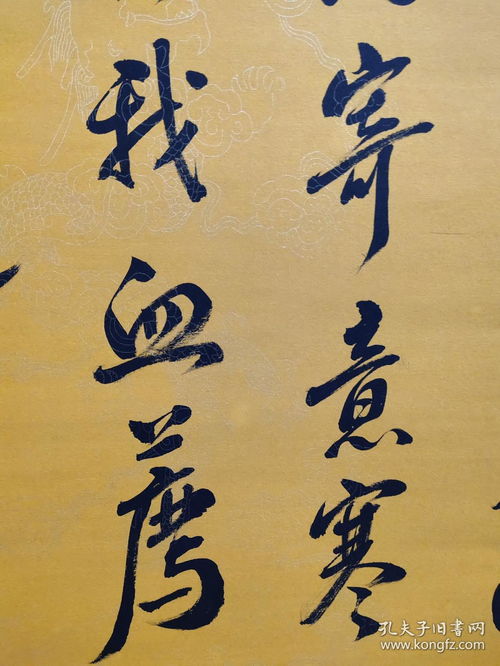 寄意寒
我血薦
孔夫子旧书网
www.kongfz.com